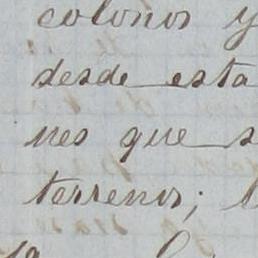 colonos y
desde esta
nes que s
terrenos;